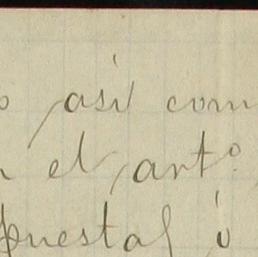 así com
el art.º
puestas ó